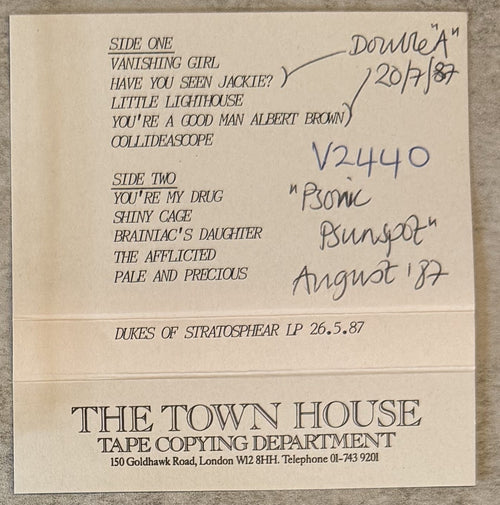 SIDE ONE
VANISHING GIRL
HAVE YOU SEEN JACKIE?
LITTLE LIGHTHOUSE
YOU'RE A GOOD MAN ALBERT BROWN
COLLIDEASCOPE
Double "A"
20/7/87
V2440
SIDE TWO
YOU'RE MY DRUG
SHINY CAGE
BRAINIAC'S DAUGHTER
THE AFFLICTED
PALE AND PRECIOUS
"Psonic
Psunspot"
August '87
DUKES OF STRATOSPHEAR LP 26.5.87
THE TOWN HOUSE
TAPE COPYING DEPARTMENT
150 Goldhawk Road, London W12 8HH. Telephone 01-743 9201